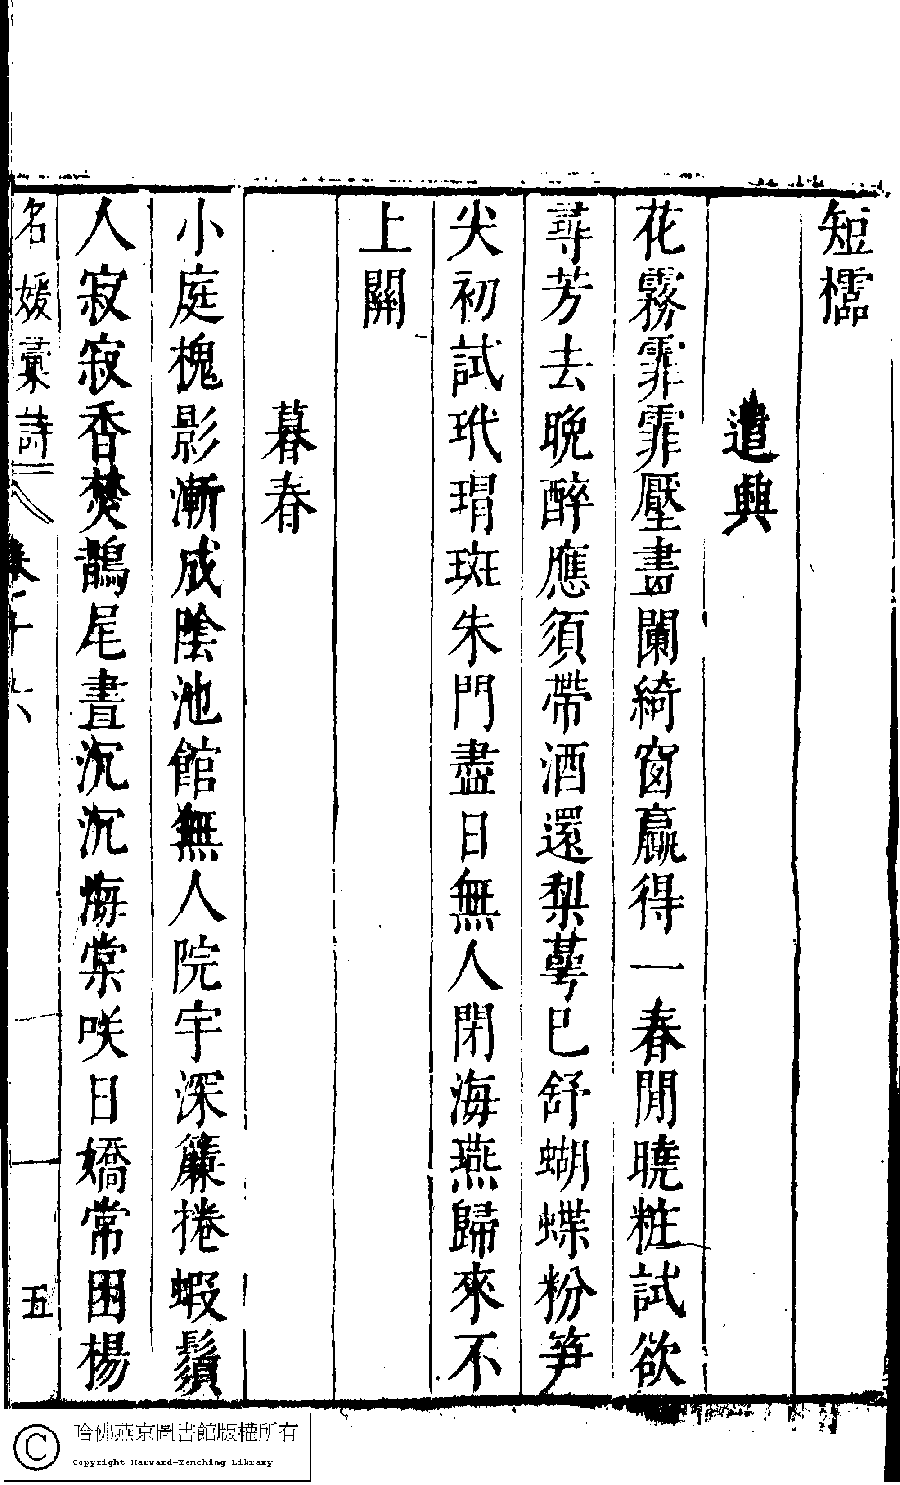 短櫺
遣興
花霧霏霏壓畫闌綺窗贏得一春閒曉粧試欲
尋芳去晚醉應須帶酒還梨萼已舒蝴蝶粉笋
尖初試玳瑁斑朱門盡日無人閉海燕歸來不
上關
暮春
小庭槐影漸成陰池館無人院宇深簾捲蝦鬚
人寂寂香焚鵲尾晝沉沉海棠咲日嬌常困楊
名媛彙詩 卷十六 五
哈佛燕京圖書館版權所有
Copyright Harvard-Yenching Library